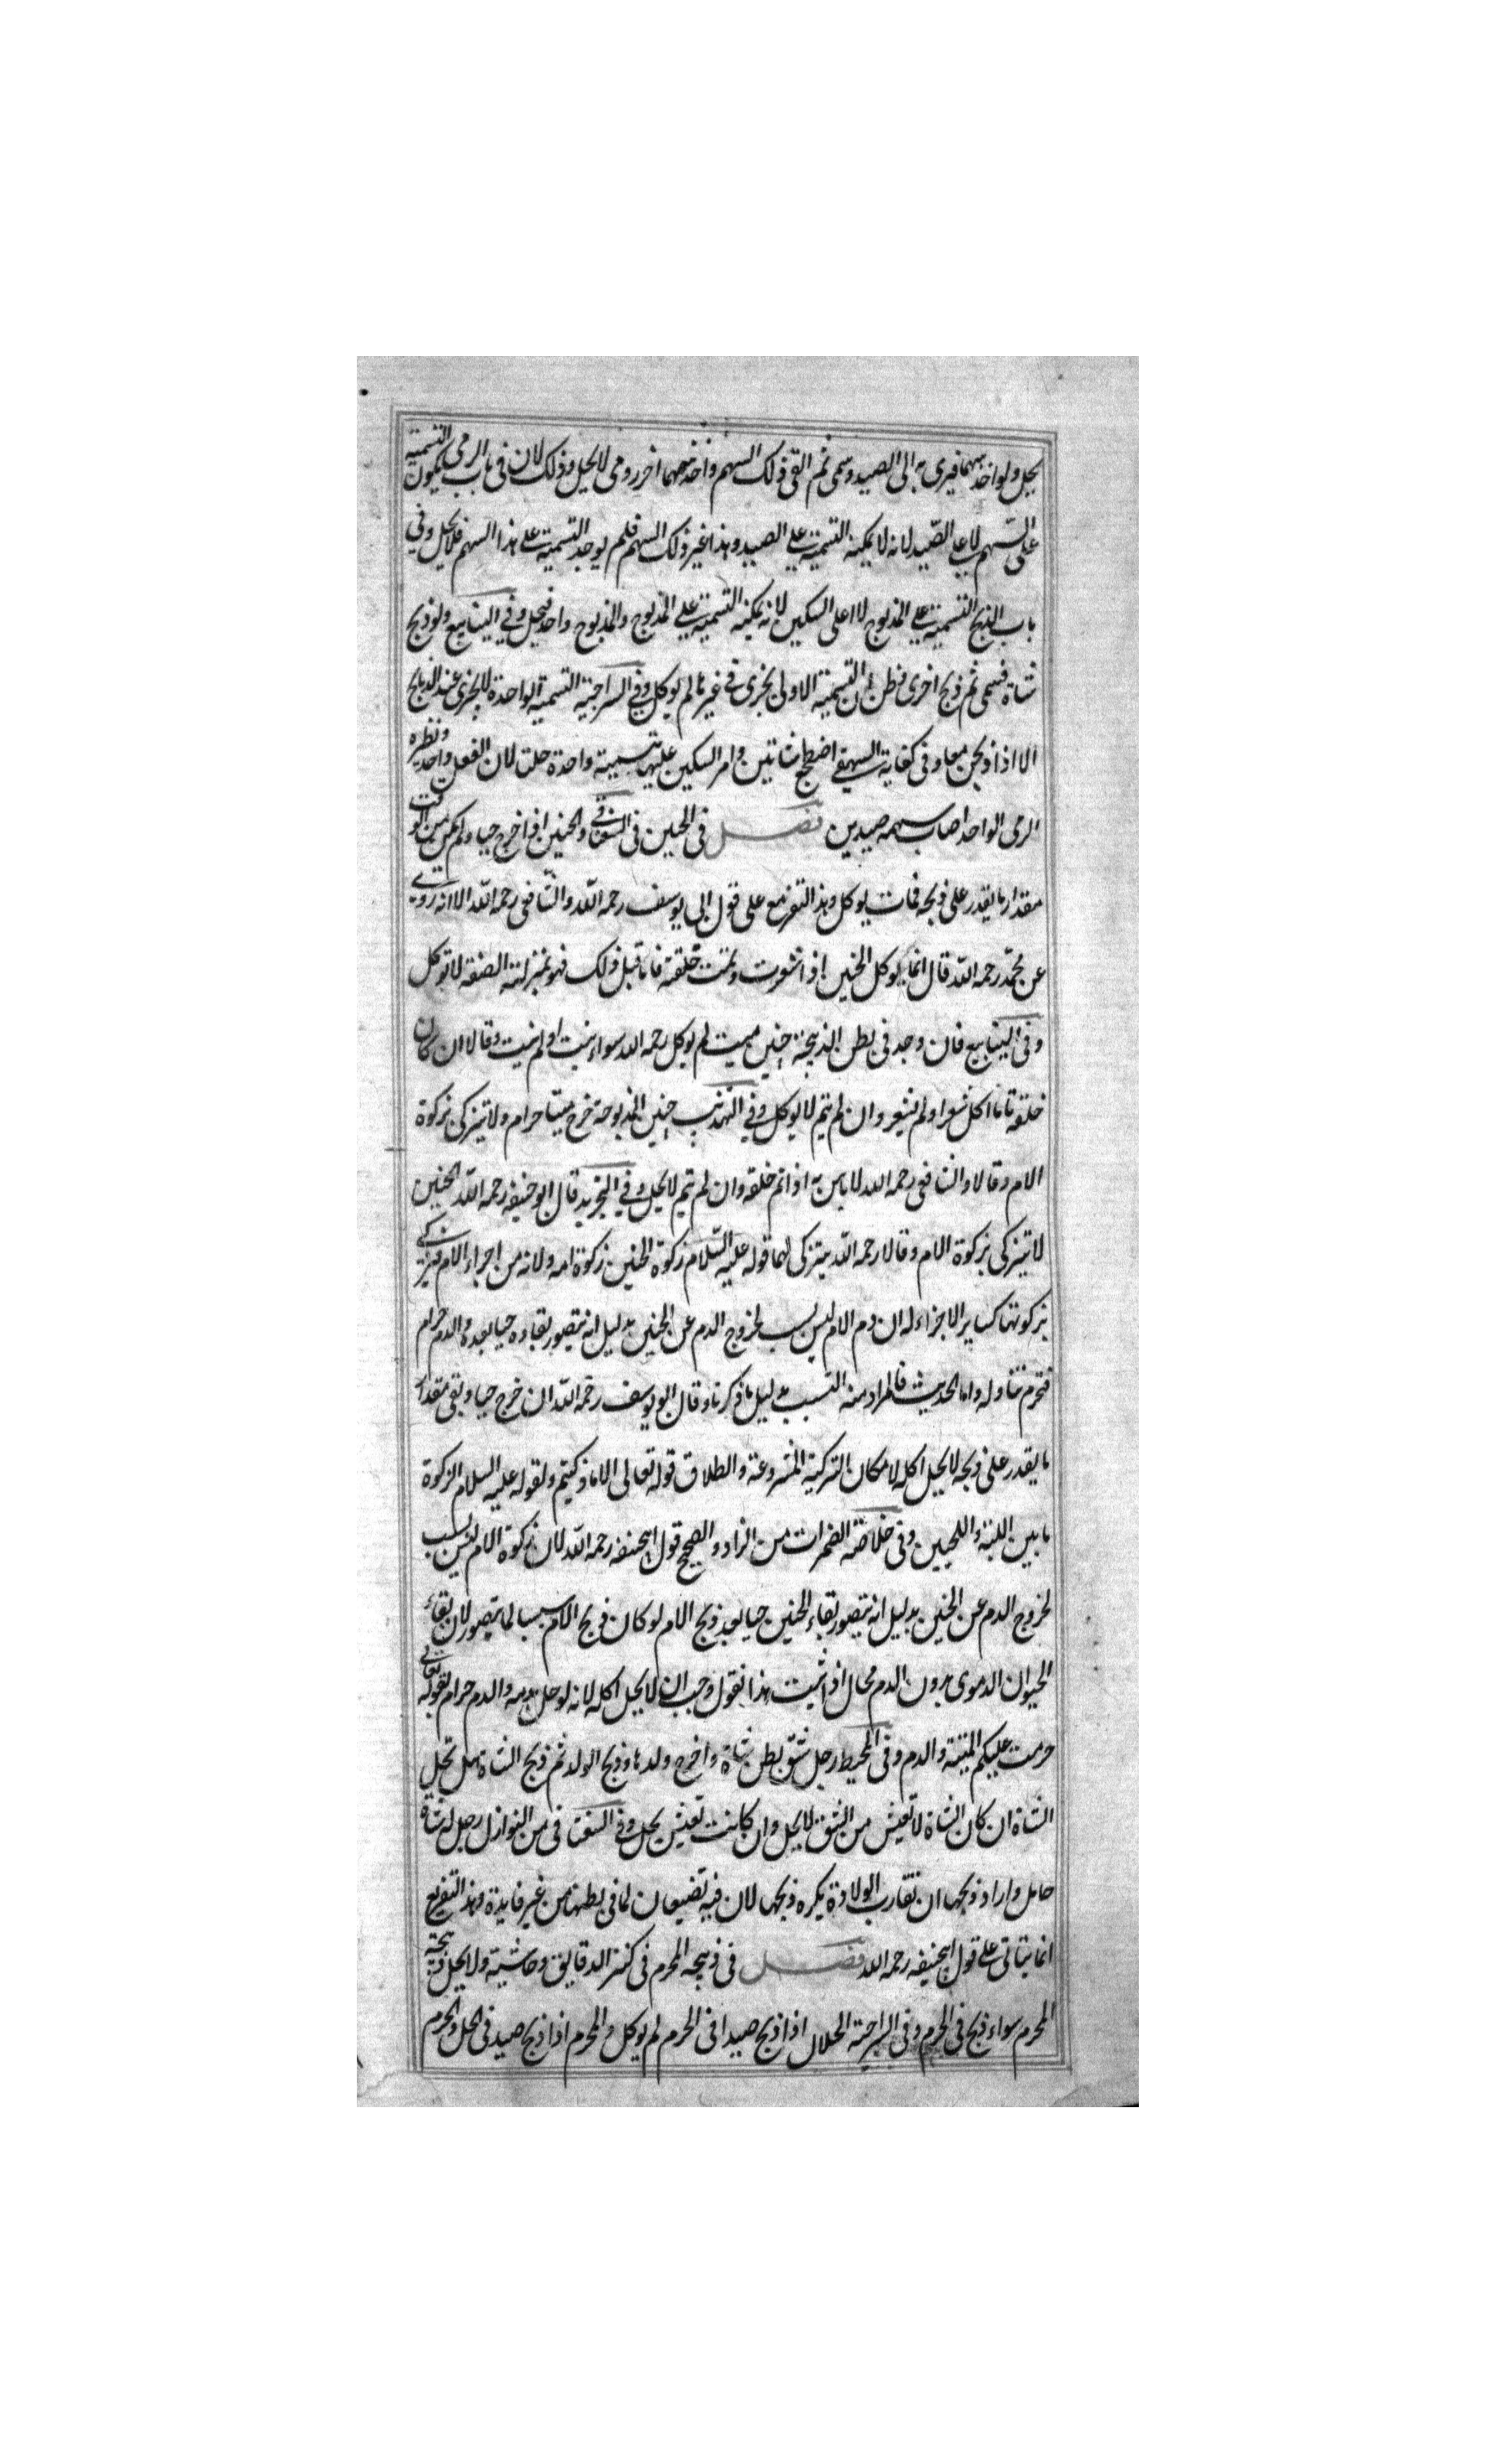 يحل ولو اخذ سهما فيرى به الى الصيد وسمى ثم القى ذلك السهم واخذ سهما اخر ورمى لا يحل وذلك لان فى باب الرمى يكون التسمية
على السهم لا على الصيد لانه لا يمكنه التسمية على الصيد وهذا غير ذلك السهم فلم يوجد التسمية على هذا السهم فلا يحل وفي
باب الذبح التسمية على المذبوح لا على السكين لانه يمكنه التسمية على المذبوح والمذبوح واحد فيحل وفي الينابيع ولو ذبح
شاة فسمى ثم ذبح اخرى فظن ان التسمية الاولى يجزى فى غيرها لم يوكل وفي السراجية التسمية الواحدة لا يجزى عند الذبايح
الا اذا ذبحن معا وفى كفاية البيهقي اضطجع شاتين وامر السكين عليهما بتسمية واحدة حلت لان الفعل واحد ونظيره
الرمى الواحد اصاب سهمه صيدين فصل فى الجنين فى السغناقي والجنين اذا خرج حيا ولم يكن من الوقت
مقدار ما يقدر على ذبحه فمات يوكل وهذا التفريع على قول ابى يوسف رحمه الله والشافعى رحمه الله الا انه روى
عن محمد رحمه الله قال انما يوكل الجنين اذا اشعرت وتمت خلقته فاما قبل ذلك فهو بمنزلة المضغة لا توكل
وفى الينابيع فان وجد فى بطن الذبيحة جنين ميت لم يوكل رحمه الله سواء نبت او لم ينبت وقالا ان كان
خلقه تاما اكل شعر او لم يشعر وان لم يتم لا يوكل وفي التهذيب جنين المذبوحة خرج ميتا حرام ولا يتزكى بزكوة
الام وقالا والشافعى رحمه الله لا باس به اذا تم خلقه وان لم يتم لا يحل وفي التجريد قال ابو حنيفه رحمه الله الجنين
لا يتزكى بزكوة الام وقالا رحمه الله يتزكى لهما قوله عليه السلام زكوة الجنين زكوة امه ولانه من اجزاء الام فيتزكى
بزكوتها كساير الاجزاء له ان دم الام ليس بسبب لخروج الدم عن الجنين بدليل انه يتصور بقاوه حيا بعده والدم حرام
فتحرم تناوله واما الحديث فالمراد منه التسبب بدليل ما ذكرنا وقال ابو يوسف رحمه الله ان خرج حيا وبقى مقدار
ما يقدر على ذبحه لا يحل اكله لامكان التزكية المشروعة والطلاق قوله تعالى الا ما ذكيتم ولقوله عليه السلام الزكوة
ما بين اللبة واللحيين وفى خلاصة المضمرات من الزاد والصحيح قول ابيحنيفه رحمه الله لان زكوة الام ليس بسبب
لخروج الدم عن الجنين بدليل انه يتصور بقاء الجنين حيا بعد ذبح الام لو كان ذبح الام سببا لما يتصور لان بقاء
الحيوان الدموى بدون الدم محال اذا ثبت هذا نقول وجب ان لا يحل اكله لانه لو حل بدمه والدم حرام لقوله تعالى
حرمت عليكم الميتة والدم وفى المحيط رجل شق بطن شاة واخرج ولدها وذبح الولد ثم ذبح الشاة هل تحل
الشاة ان كان الشاة لا تعيش من الشق لا يحل وان كانت تعيش يحل وفي السغناقى من النوازل رجل له شاة
حامل واراد ذبحها ان تقارب الولادة يكره ذبحها لان فيه تضييعا لما فى بطنها من غير فايدة وهذا التفريع
انما يتاتى على قول ابيحنيفه رحمه الله فصل فى ذبيحة المحرم فى كنز الدقايق وحاشيته ولا يحل ذبيحة
المحرم سواء ذبح فى الحرم وفى السراجية الحلال اذا ذبح صيدا فى الحرم لم يوكل والمحرم اذا ذبح صيد فى الحل والحرم